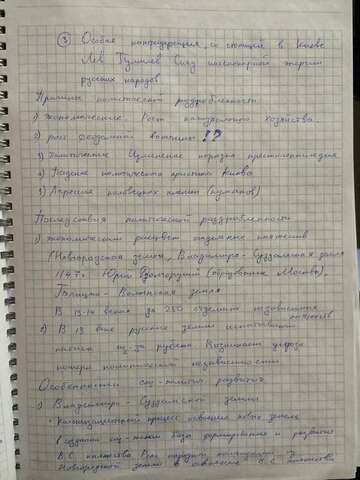 ③ Особая конфедерация, со столицей в Киеве
Лев Гумилев Спад пассионарной энергии
русских народов
Причины политической раздробленности
1) Экономические. Рост натурального хозяйства.
2) рост феодальной вотчины !?
3) Политические Изменение порядка престолонаследия
4) Падение политического престижа Киева
5) Агрессия половецких племен (куманов)
Последствия политической раздробленности
1) Экономический расцвет отдельных княжеств
(Новгородская земля, Владимиро-Суздальская земля
1147г. Юрий Долгорукий (образование Москвы),
Галицко-Волынская земля
В 13-14 веках до 250 отдельно независимых
княжеств
2) В 13 веке русские земли испытывают
из-за рубежа Возникает угроза
потери политической независимости
Особенности соц-полит развития
1) Владимиро-Суздальской земли
• Колонизационный процесс освоения новых земель
создание база формирования и развития
В.С. княжества Роль народной колонизации
Новгородской земли в освоение В.С. княжества